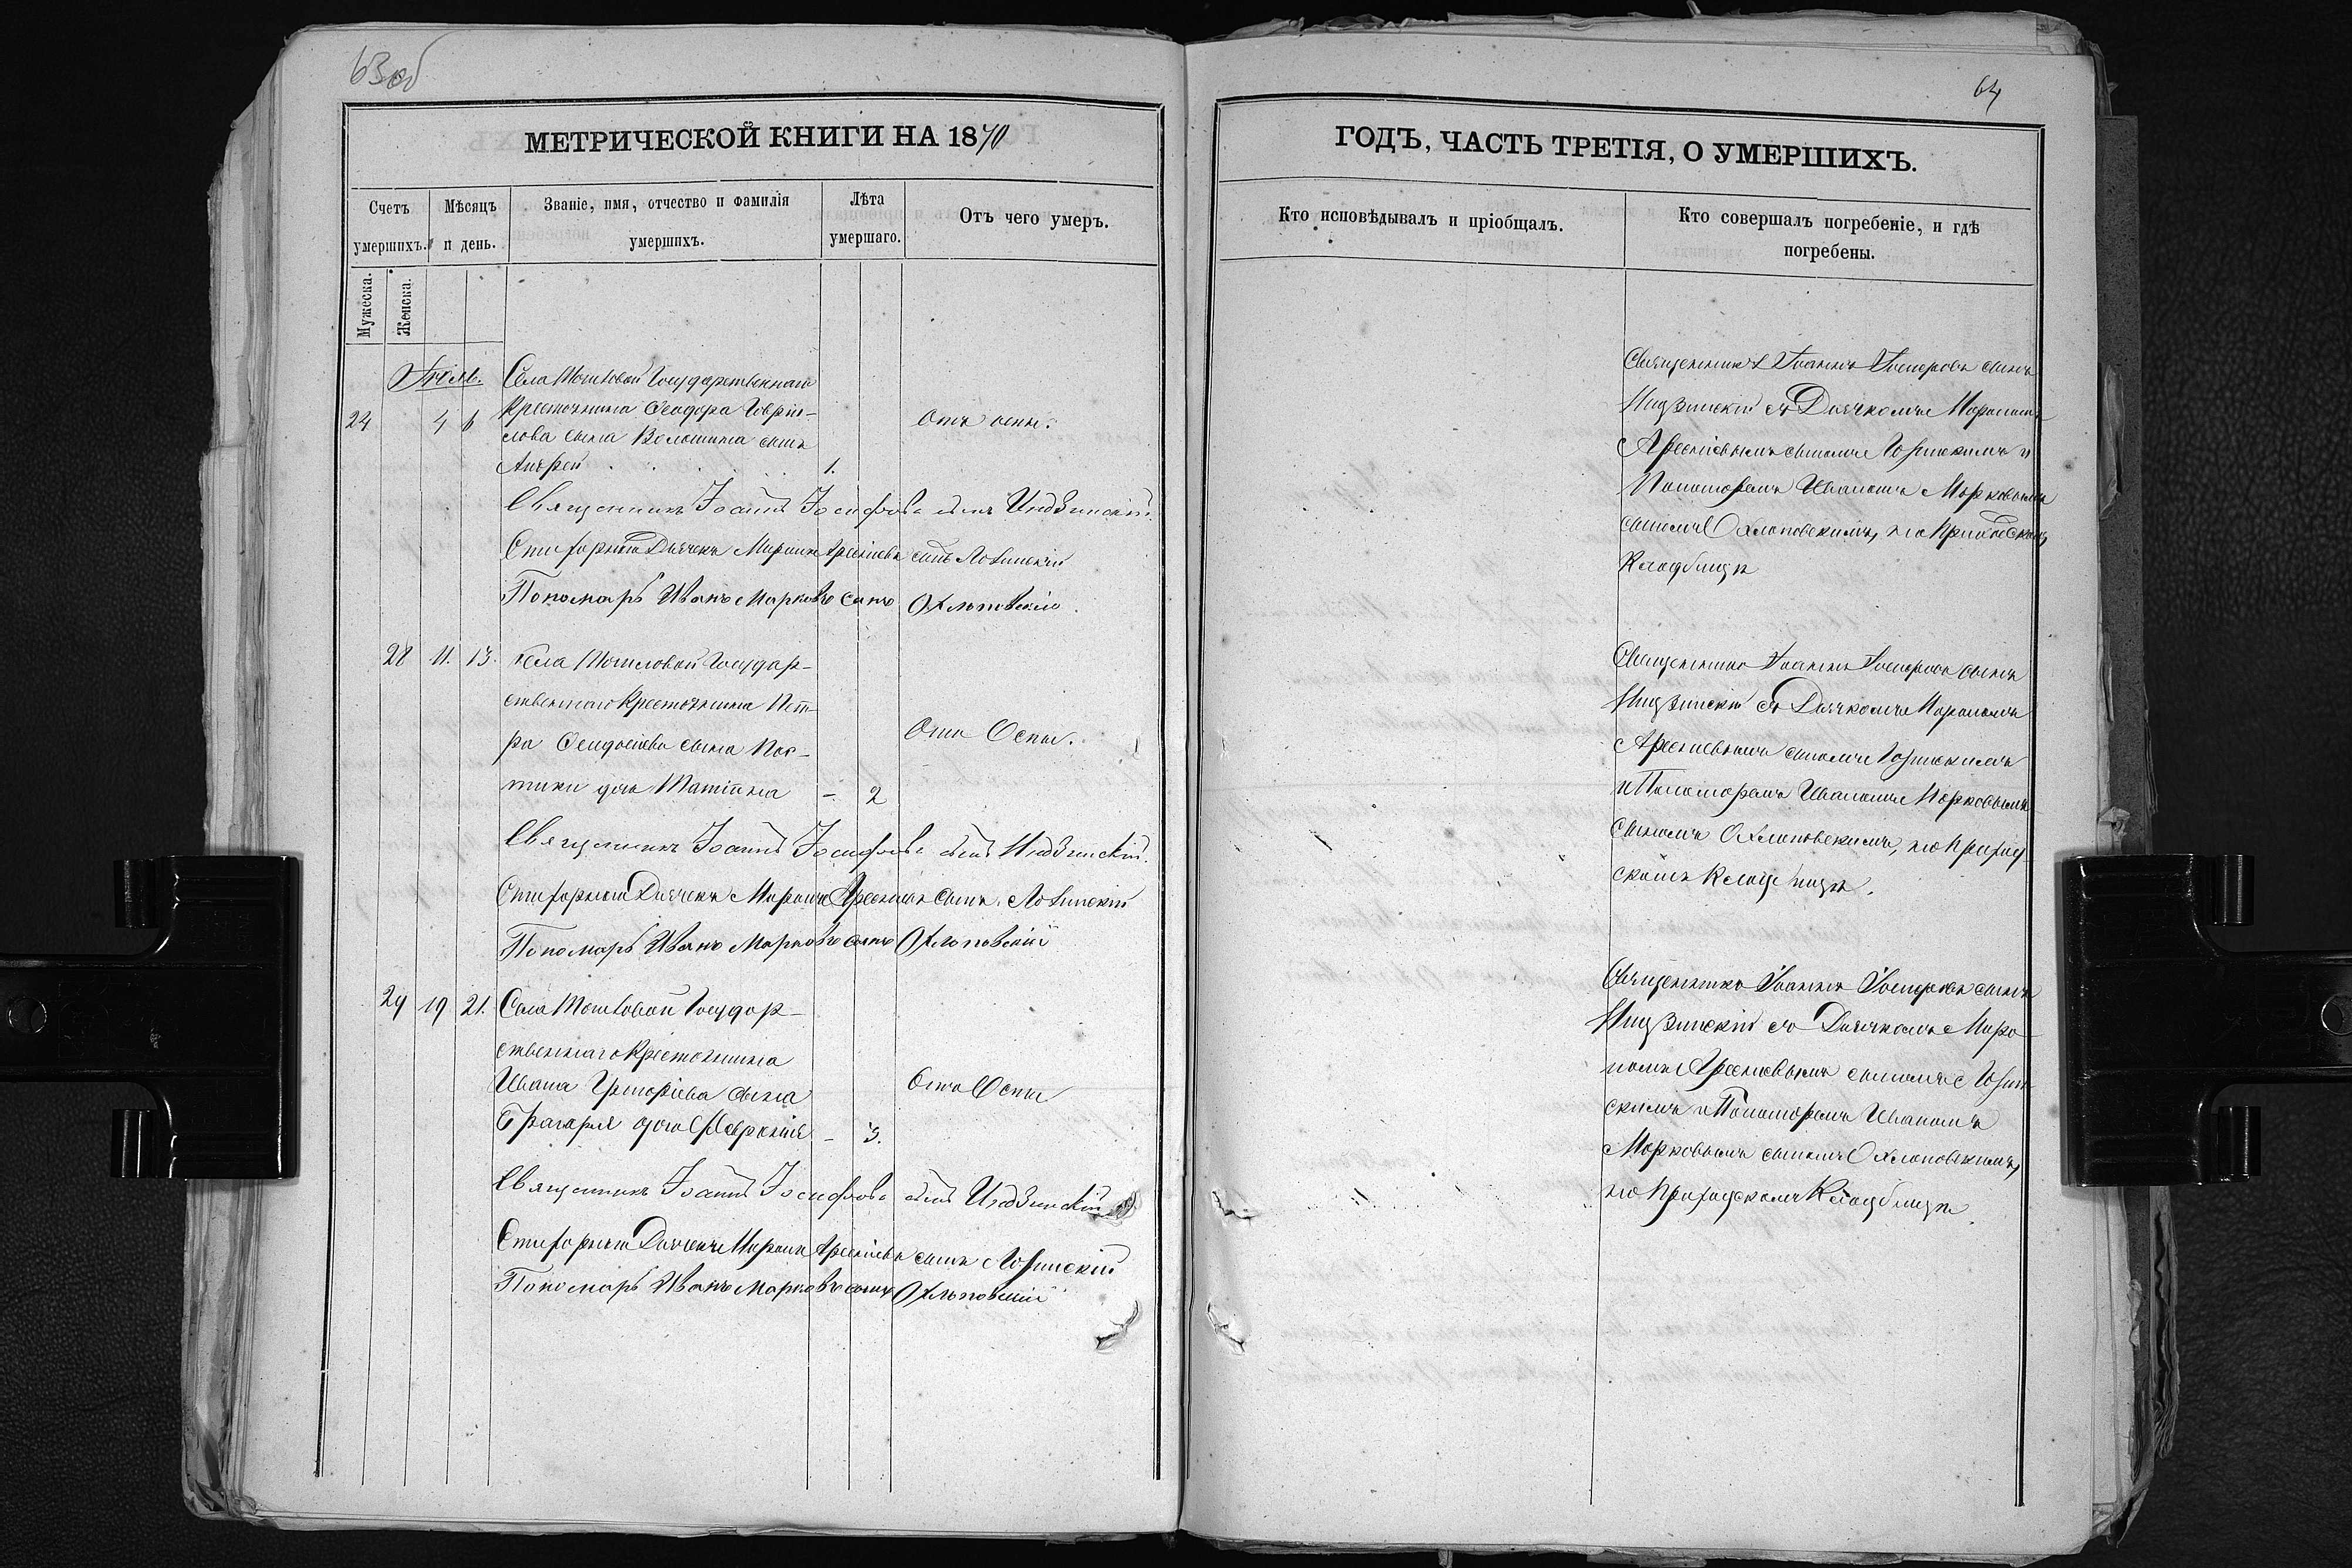 63об
МЕТРИЧЕСКОЙ КНИГИ НА 1870
Счетъ умершихъ.
Мѣсяцъ и день.
Званіе, имя, отчество и фамилія умершихъ.
Лѣта умершаго.
Отъ чего умеръ.
Мужеска.
Женска.
Села Государственнаго
24 4 6 Крестьянина Ѳеодора Гаврі-
лова сына Волошина сынъ
Андрей 1.
Отъ оспы.
Священникъ Іоаннъ Іосифовъ сынъ Индзинскій.
Дьячекъ Миронъ Арсеніевъ сынъ Лозинскій
Пономарь Иванъ Марковъ сынъ Охлоповскій.
28 11. 13. Села Государ-
ственнаго Крестьянина Пет-
ра сына Кос-
тики дочь Татіяна – 2
Отъ Оспы.
Священникъ Іоаннъ Іосифовъ сынъ Индзинскій.
Дьячекъ Миронъ Арсеніевъ сынъ Лозинскій
Пономарь Иванъ Марковъ сынъ Охлоповскій
29 19 21. Села Государ-
ственнаго Крестьянина
Ивана Григоріева сына
дочь – 3.
Отъ Оспы
Священникъ Іоаннъ Іосифовъ сынъ Индзинскій
Дьячекъ Миронъ Арсеніевъ сынъ Лозинскій
Пономарь Иванъ Марковъ сынъ Охлоповскій
64
ГОДЪ, ЧАСТЬ ТРЕТІЯ, О УМЕРШИХЪ.
Кто исповѣдывалъ и пріобщалъ.
Кто совершалъ погребеніе, и гдѣ погребены.
Священникъ Іоаннъ Іосифовъ сынъ
Индзинскій съ Дьячкомъ Мирономъ
Арсеніевымъ сыномъ Лозинскимъ и
Пономаремъ Иваномъ Марковымъ
сыномъ Охлоповскимъ, на Приходскомъ
Кладбищѣ
Священникъ Іоаннъ Іосифовъ сынъ
Индзинскій съ Дьячкомъ Мирономъ
Арсеніевымъ сыномъ Лозинскимъ
и Пономаремъ Иваномъ Марковымъ
сыномъ Охлоповскимъ, на Приход-
скомъ Кладбищѣ.
Священникъ Іоаннъ Іосифовъ сынъ
Индзинскій съ Дьячкомъ Миро-
номъ Арсеніевымъ сыномъ Лозин-
скимъ и Пономаремъ Иваномъ
Марковымъ сыномъ Охлоповскимъ,
на Приходскомъ Кладбищѣ.